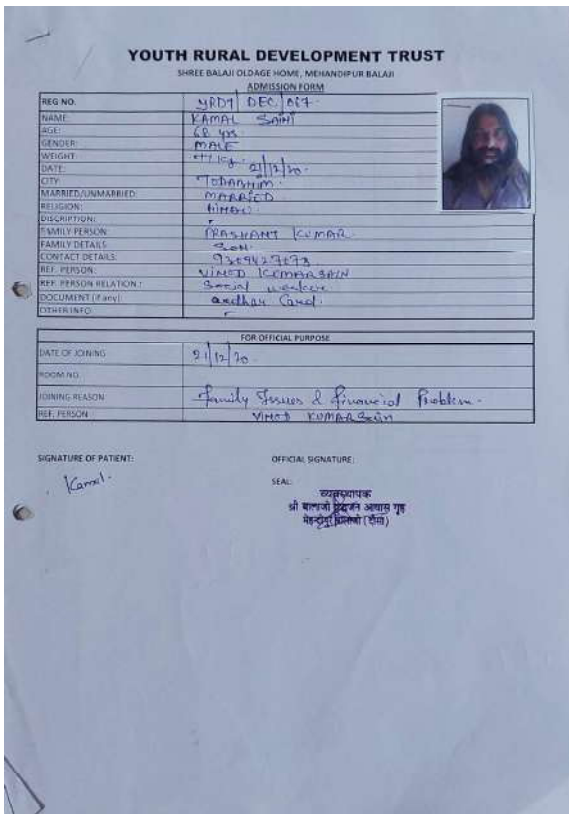 YOUTH RURAL DEVELOPMENT TRUST
SHREE BALAJI OLDAGE HOME, MEHANDIPUR BALAJI
ADMISSION FORM
REG NO. YRDT DEC 067
NAME: KAMAL SAINI
AGE: 68 yrs
GENDER: MALE
WEIGHT: kg
DATE: 21/12/20
CITY: TODABHIM
MARRIED/UNMARRIED: MARRIED
RELIGION: HINDU
DISCRIPTION:
FAMILY PERSON: PRASHANT KUMAR
FAMILY DETAILS: SON
CONTACT DETAILS:
REF. PERSON: VINOD KUMAR SAIN
REF. PERSON RELATION : Social worker
DOCUMENT (if any): aadhar Card.
OTHER INFO
FOR OFFICIAL PURPOSE
DATE OF JOINING 21/12/20
ROOM NO.
JOINING REASON Family Issues & financial Problem.
REF. PERSON VINOD KUMAR SAIN
SIGNATURE OF PATIENT: OFFICIAL SIGNATURE:
Kamal. SEAL:
व्यवस्थापक
श्री बालाजी वृद्धजन आवास गृह
मेहन्दीपुर बालाजी (दौसा)